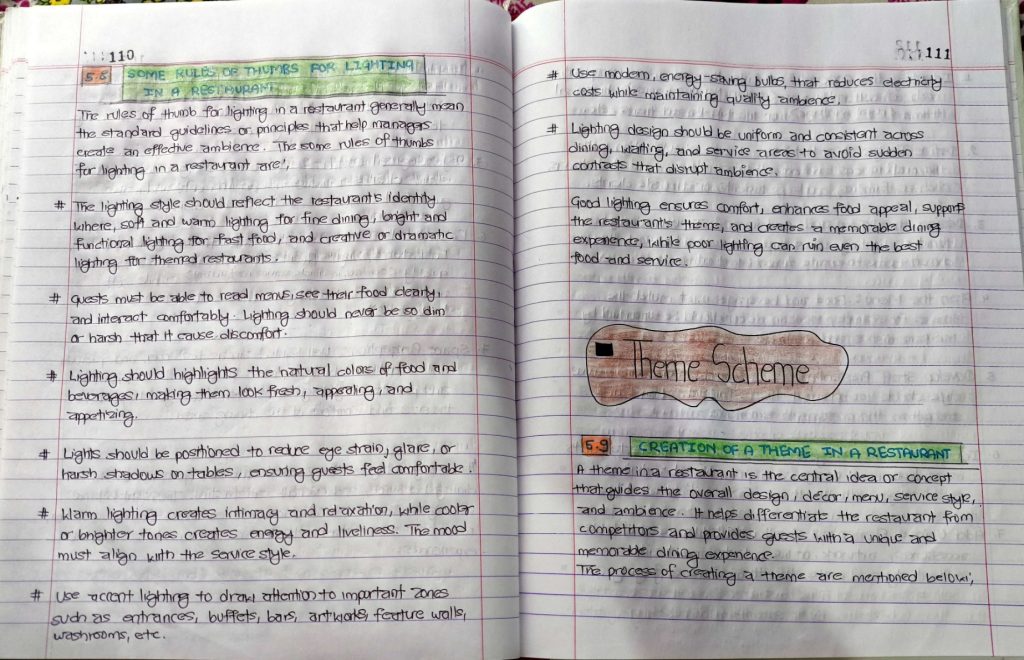 110
5.8 SOME RULES OF THUMBS FOR LIGHTING
IN A RESTAURANT
The rules of thumb for lighting in a restaurant generally mean
the standard guidelines or principles that help managers
create an effective ambience. The some rules of thumbs
for lighting in a restaurant are;
# The lighting style should reflect the restaurant's identity
where, soft and warm lighting for fine dining, bright and
functional lighting for fast food, and creative or dramatic
lighting for themed restaurants.
# Guests must be able to read menus, see their food clearly,
and interact comfortably. Lighting should never be so dim
or harsh that it cause discomfort.
# Lighting should highlights the natural colors of food and
beverages, making them look fresh, appealing, and
appetizing.
# Lights should be positioned to reduce eye strain, glare, or
harsh shadows on tables, ensuring guests feel comfortable.
# Warm lighting creates intimacy and relaxation, while cooler
or brighter tones creates energy and liveliness. The mood
must align with the service style.
# Use accent lighting to draw attention to important zones
such as entrances, buffets, bars, artworks, feature walls,
washrooms, etc.
111
# Use modern, energy-saving bulbs, that reduces electricity
costs while maintaining quality ambience.
# Lighting design should be uniform and consistent across
dining, waiting, and service areas to avoid sudden
contrasts that disrupt ambience.
Good lighting ensures comfort, enhances food appeal, supports
the restaurant's theme, and creates a memorable dining
experience, while poor lighting can ruin even the best
food and service.
Theme Scheme
5.9 CREATION OF A THEME IN A RESTAURANT
A theme in a restaurant is the central idea or concept
that guides the overall design, décor, menu, service style,
and ambience. It helps differentiate the restaurant from
competitors and provides guests with a unique and
memorable dining experience.
The process of creating a theme are mentioned below;